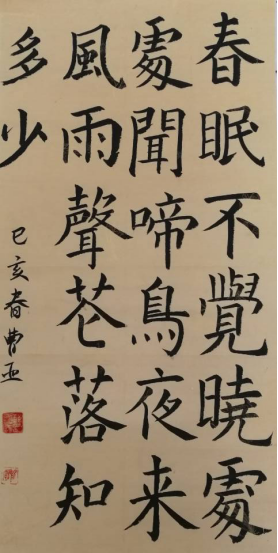 春眠不覺曉處
處聞啼鳥夜来
風雨聲花落知
多少
己亥春曹亚